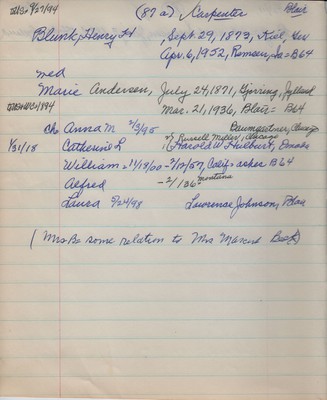 (87 a) Carpenter Blair
Blunk, Henry , Sept. 29, 1873, Kiel, Ger
Apr. 6, 1952, Remsen, Ia = B64
wed
Marie Andersen, July 24, 1871, Hjorring, Jylland
Mar. 21, 1936, Blair = B64
ch Anna M 2/3/95 Baumgartner, Chicago
Russell Miller, Chicago
1/31/18 Catherine L (Harold W Hulbert, Omaha
William = 11/18/00 - 2/15/57, Calif = ashes B64
Alfred - 2/ 136 = Montana
Laura 9/24/98 Lawrence Johnson, Blair
(Mrs B. some relation to Mrs Marcus Beck)